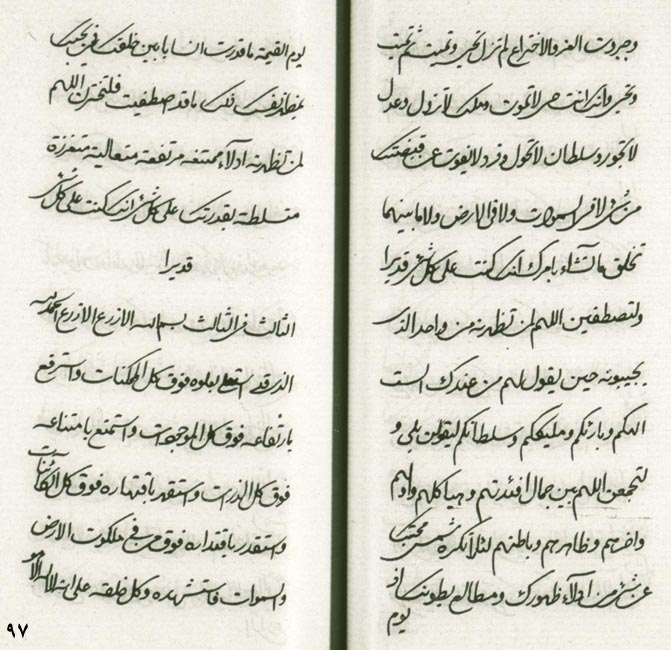 وجبروت العز والاختراع لم تزل تحيي وتميت ثم تميت
وتحيي وانك انت حي لا تموت وملك لا تزول وعدل
لا تجور وسلطان لا تحول وفرد لا يفوت عن قبضتك
من شيء لا في السموات ولا في الارض ولا ما بينهما
تخلق ما تشاء بامرك انك كنت على كل شيء قديرا
ولتصطفين اللهم لمن تظهرنه من واحد الذي
يجيبونه حين يقول لهم من عندك الست
الهكم وبارئكم ومليككم وسلطانكم ليقولن بلى و
لتجمعن اللهم بين جمال افئدتهم وهياكلهم واولهم
واخرهم وظاهرهم وباطنهم لئلا تكره شمس محبتك
عن شيء من ادلاء ظهورك ومطالع بطونك اذ
يوم
يوم القيمة ما قدرت انسابا بين خلقك في
بمظاهر نفسك ما قد اصطفيت فلتخترن اللهم
لمن تظهرنه ادلاء ممتنعة مرتفعة متعالية متعززة
متسلطة بقدرتك على كل شيء انك كنت على كل شيء
قديرا
الثالث في الثالث بسم الله الازرع الازرع الحمد لله
الذي قد استعلى بعلوه فوق كل الممكنات واسترفع
بارتفاعه فوق كل الموجودات واستمنع بامتناعه
فوق كل الذرات واستقدر باقتهاره فوق كل الكائنات
واستقدر باقتداره فوق من في ملكوت الارض
والسموات فاستشهده وكل خلقه على انه لا اله الا هو
٩٧